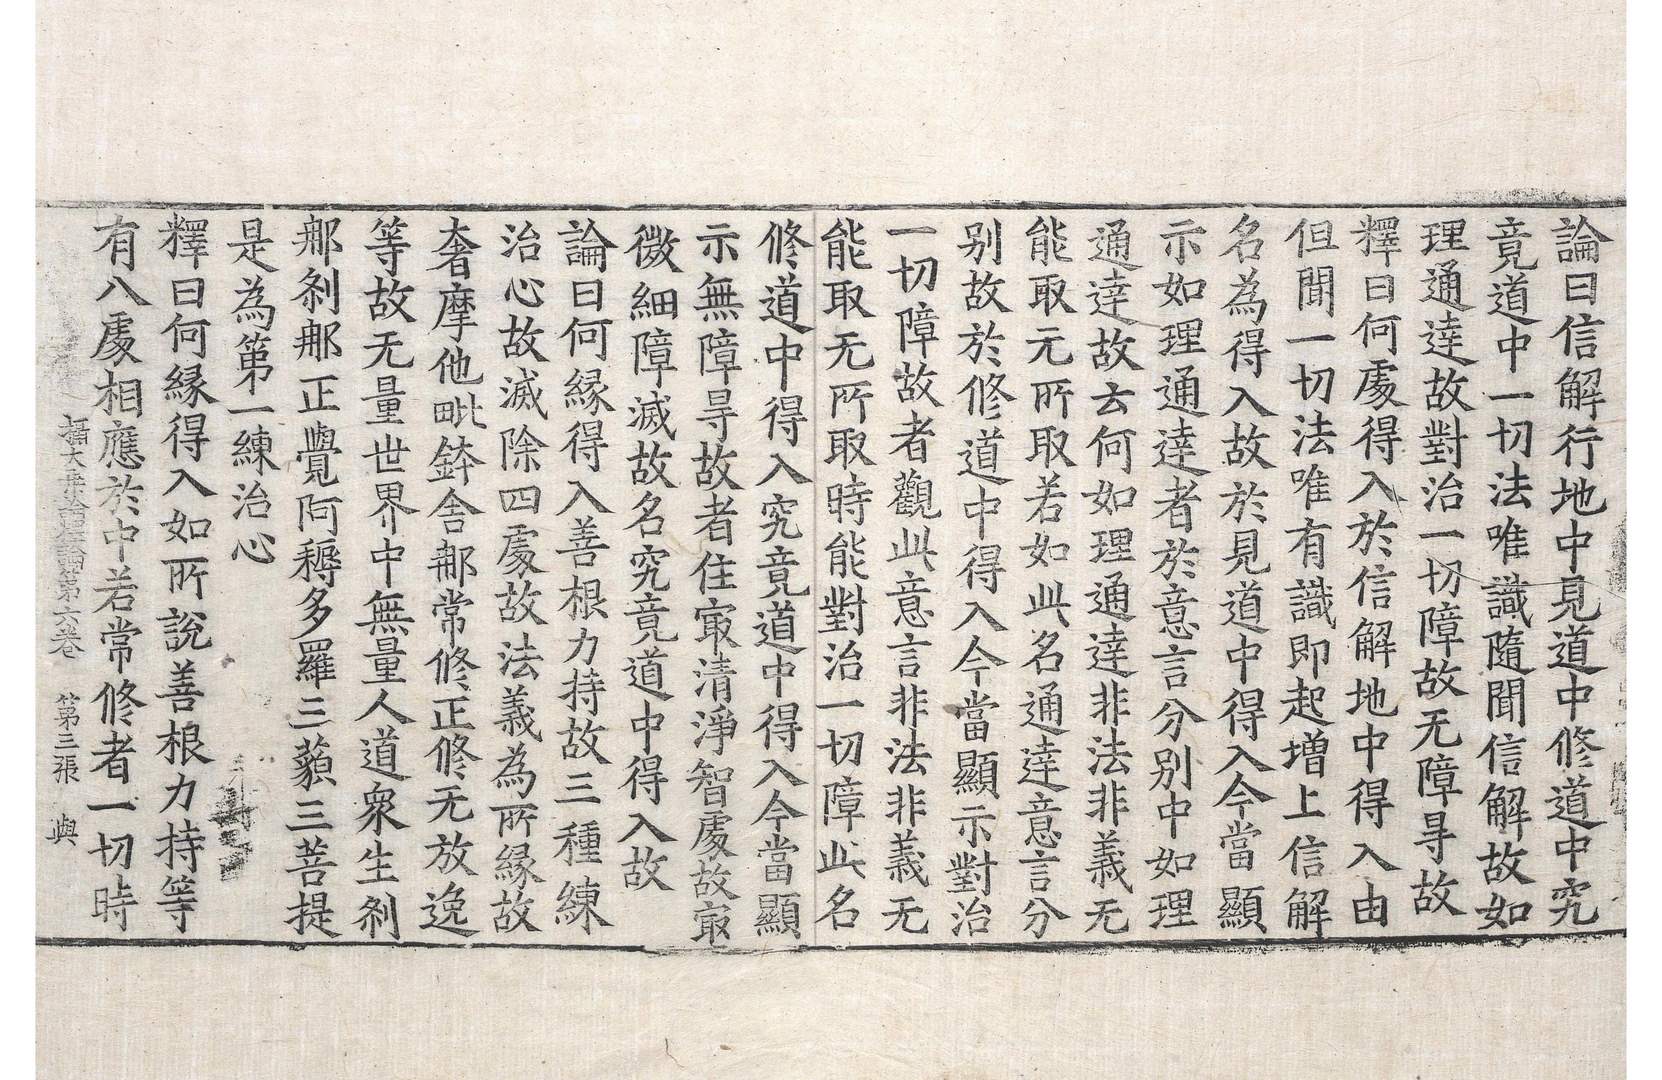 論曰信解行地中見道中修道中究
竟道中一切法唯識隨聞信解故如
理通達故對治一切障故无障㝵故
釋曰何處得入於信解地中得入由
但聞一切法唯有識即起增上信解
名為得入故於見道中得入今當顯
示如理通達者於意言分別中如理
通達故云何如理通達非法非義无
能取无所取若如此名通達意言分
別故於修道中得入今當顯示對治
一切障故者觀此意言非法非義无
能取无所取時能對治一切障此名
修道中得入究竟道中得入今當顯
示無障㝵故者住㝡清淨智處故㝡
微細障滅故名究竟道中得入故
論曰何緣得入善根力持故三種練
治心故滅除四處故法義為所緣故
奢摩他毗鉢舍那常修正修无放逸
等故无量世界中無量人道衆生剎
那剎那正覺阿耨多羅三藐三菩提
是為第一練治心
釋曰何緣得入如所說善根力持等
有八處相應於中若常修者一切時
攝大乘論釋論第六卷　第三張　與